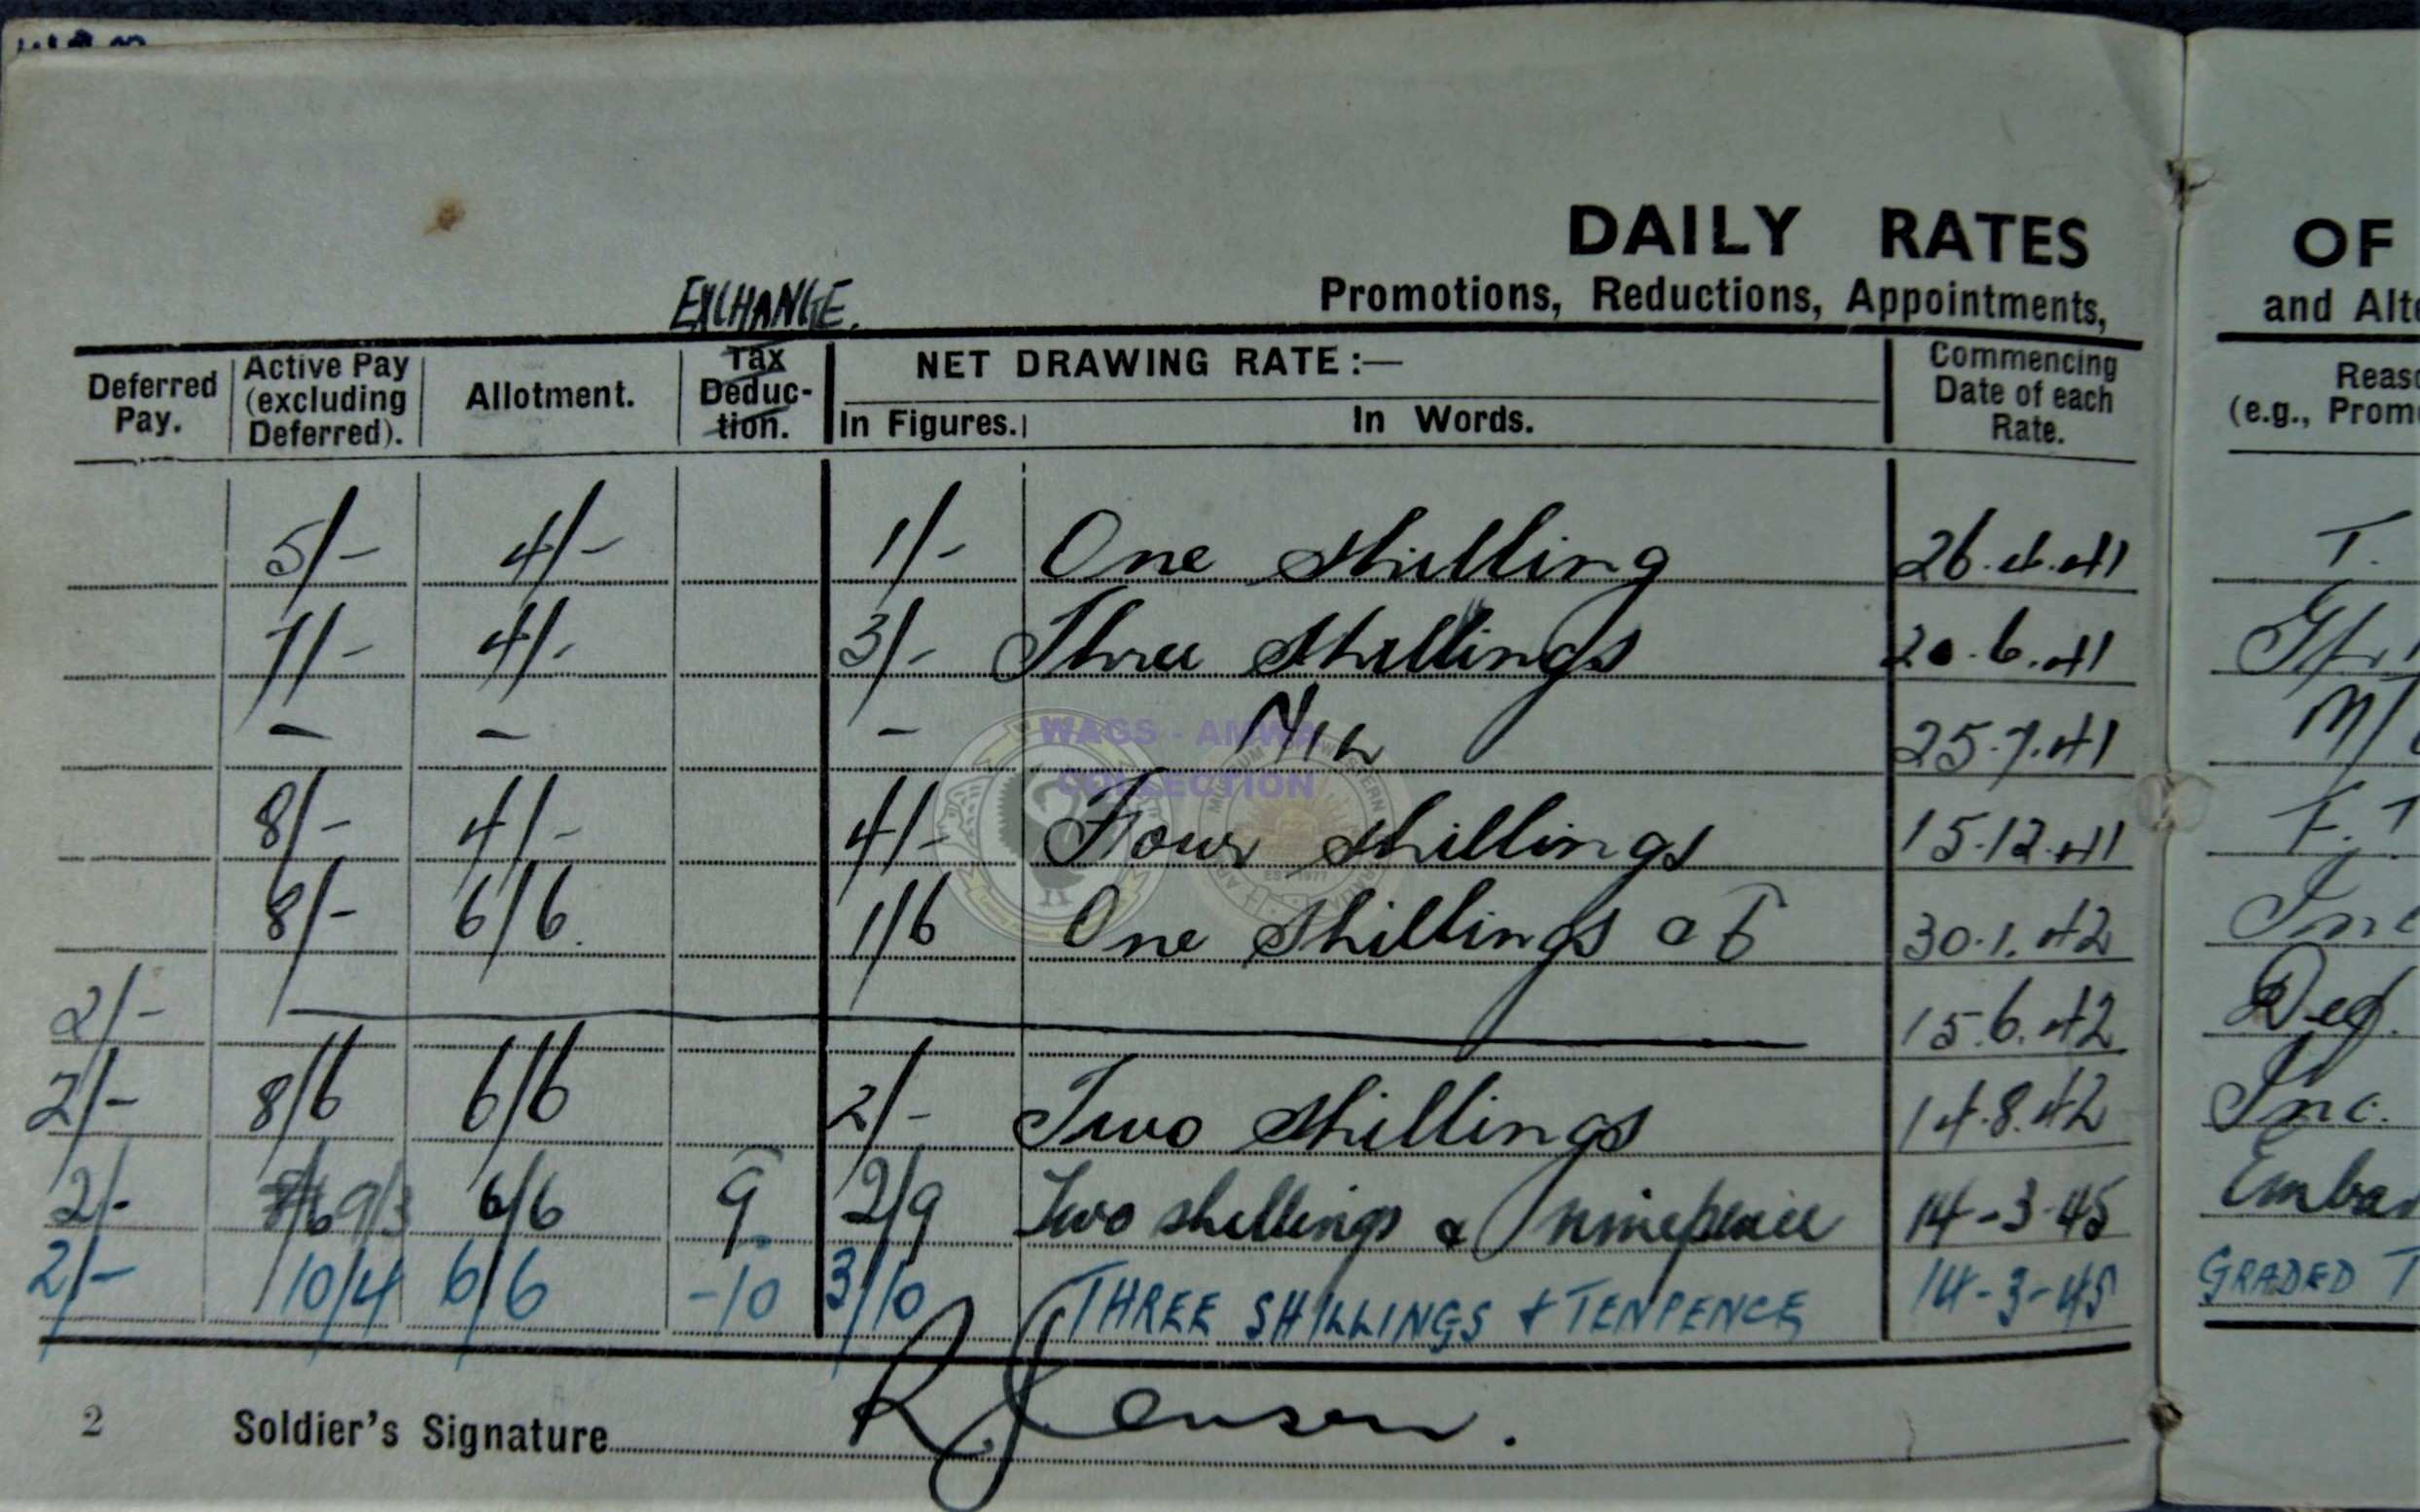 DAILY RATES OF
EXCHANGE. Promotions, Reductions, Appointments, and Alte
Deferred Pay. Active Pay (excluding Deferred). Allotment. Tax Deduc-tion. NET DRAWING RATE:— In Figures. In Words. Commencing Date of each Rate. Reaso (e.g., Promo
5/- 4/- 1/- One shilling 26.4.41 T.
7/- 4/- 3/- Three Shillings 20.6.41
- - - NIL 25.7.41
8/- 4/- 4/- Four shillings 15.12.41 F.T
8/- 6/6. 1/6 One Shillings 30.1.42 Inc
2/- 15.6.42 Def.
2/- 8/6 6/6 2/- Two Shillings 14.8.42 Inc.
2/- 9/3 6/6 9 2/9 Two shillings & ninepence 14-3-45 Embar
2/- 10/4 6/6 -10 3/10 THREE SHILLINGS & TENPENCE 14-3-45 GRADED T
WAGS - AMWA
COLLECTION
2 Soldier's Signature R. Jensen.